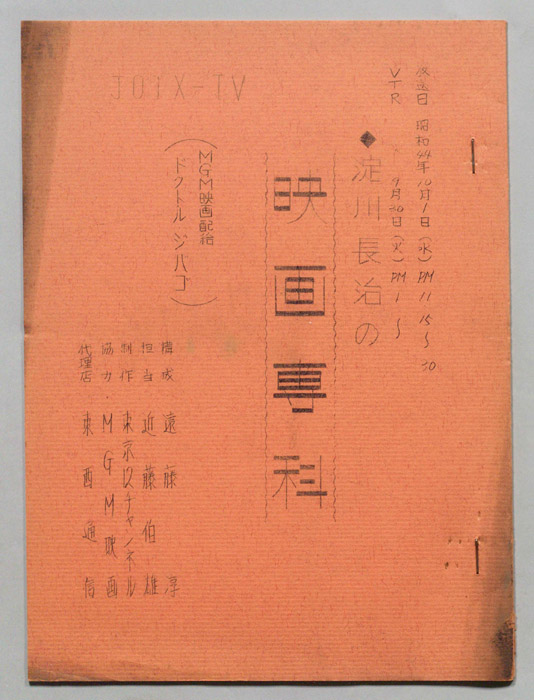 放送日 昭和44年10月1日(水)PM 11 15〜30
VTR 9月30日(火)PM 1〜
◆淀川長治の
映画専科
MGM映画配給
(ドクトル ジバゴ)
JOTX-TV
構成 遠藤 淳
担当 近藤伯雄
制作 東京12チャンネル
協力・MGM映画
代理店 東西通信